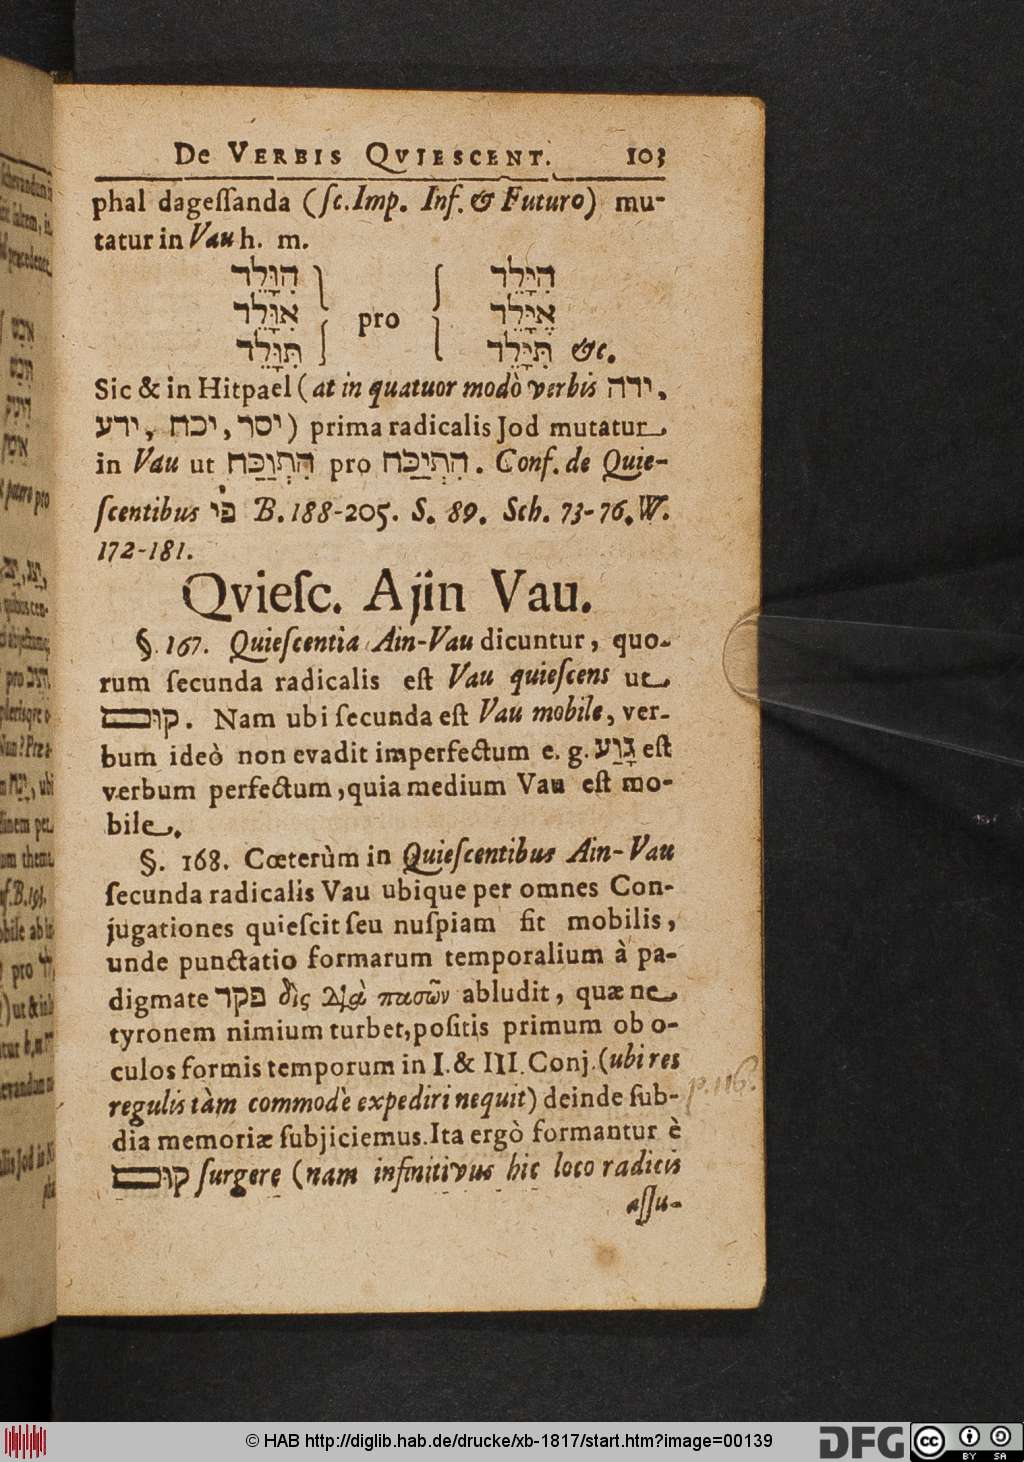 De VERBIS QVIESCENT. 103
phal dageſſanda (ſc. Imp. Inf. & Futuro) mu-
tatur in Vau h. m.
הִוָּלֵד } pro { הִיָּלֵד
אִוָּלֵד אִיָּלֵד
תִּוָּלֵד תִּיָּלֵד &c.
Sic & in Hitpael (at in quatuor modò verbis ידה,
ידע, יכח, יסר) prima radicalis Jod mutatur
in Vau ut הִתְוַכַּח pro הִתְיַכַּח. Conf. de Quie-
ſcentibus פי B. 188-205. S. 89. Sch. 73-76. W.
172-181.
Qvieſc. Ajin Vau.
§. 167. Quieſcentia Ain-Vau dicuntur, quo-
rum ſecunda radicalis eſt Vau quieſcens ut
קום. Nam ubi ſecunda eſt Vau mobile, ver-
bum ideò non evadit imperfectum e. g. גָּוַע eſt
verbum perfectum, quia medium Vau eſt mo-
bile.
§. 168. Cœterùm in Quieſcentibus Ain-Vau
ſecunda radicalis Vau ubique per omnes Con-
jugationes quieſcit ſeu nuſpiam fit mobilis,
unde punctatio formarum temporalium à pa-
digmate פקד δὶς διὰ πασῶν abludit, quæ ne
tyronem nimium turbet, poſitis primum ob o-
culos formis temporum in I. & III. Conj. (ubi res
regulis tàm commodè expediri nequit) deinde ſub-
dia memoriæ ſubjiciemus. Ita ergò formantur è
קום ſurgere (nam infinitivus hic loco radicis
aſſu-
p. 116.
© HAB http://diglib.hab.de/drucke/xb-1817/start.htm?image=00139
DFG
cc BY SA